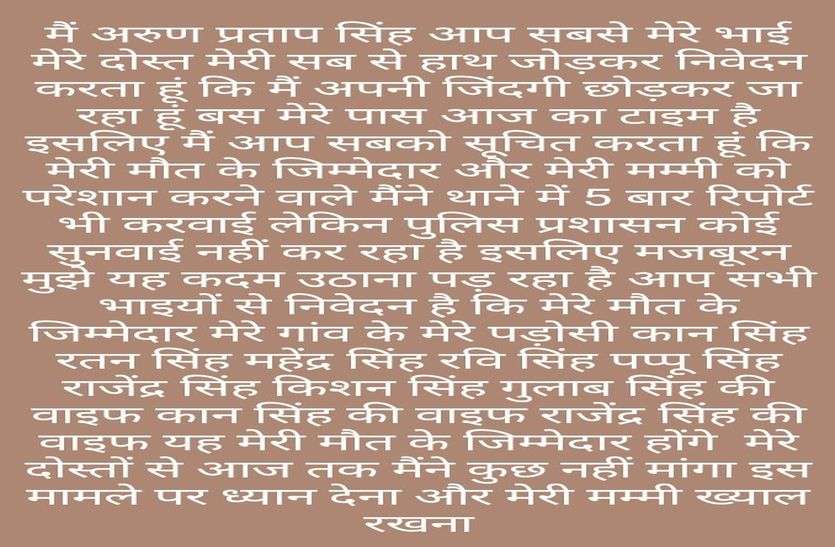 मैं अरुण प्रताप सिंह आप सबसे मेरे भाई
मेरे दोस्त मेरी सब से हाथ जोड़कर निवेदन
करता हूं कि मैं अपनी जिंदगी छोड़कर जा
रहा हूं बस मेरे पास आज का टाइम है
इसलिए मैं आप सबको सूचित करता हूं कि
मेरी मौत के जिम्मेदार और मेरी मम्मी को
परेशान करने वाले मैंने थाने में 5 बार रिपोर्ट
भी करवाई लेकिन पुलिस प्रशासन कोई
सुनवाई नहीं कर रहा है इसलिए मजबूरन
मुझे यह कदम उठाना पड़ रहा है आप सभी
भाइयों से निवेदन है कि मेरे मौत के
जिम्मेदार मेरे गांव के मेरे पड़ोसी कान सिंह
रतन सिंह महेंद्र सिंह रवि सिंह पप्पू सिंह
राजेंद्र सिंह किशन सिंह गुलाब सिंह की
वाइफ कान सिंह की वाइफ राजेंद्र सिंह की
वाइफ यह मेरी मौत के जिम्मेदार होंगे मेरे
दोस्तों से आज तक मैंने कुछ नहीं मांगा इस
मामले पर ध्यान देना और मेरी मम्मी ख्याल
रखना